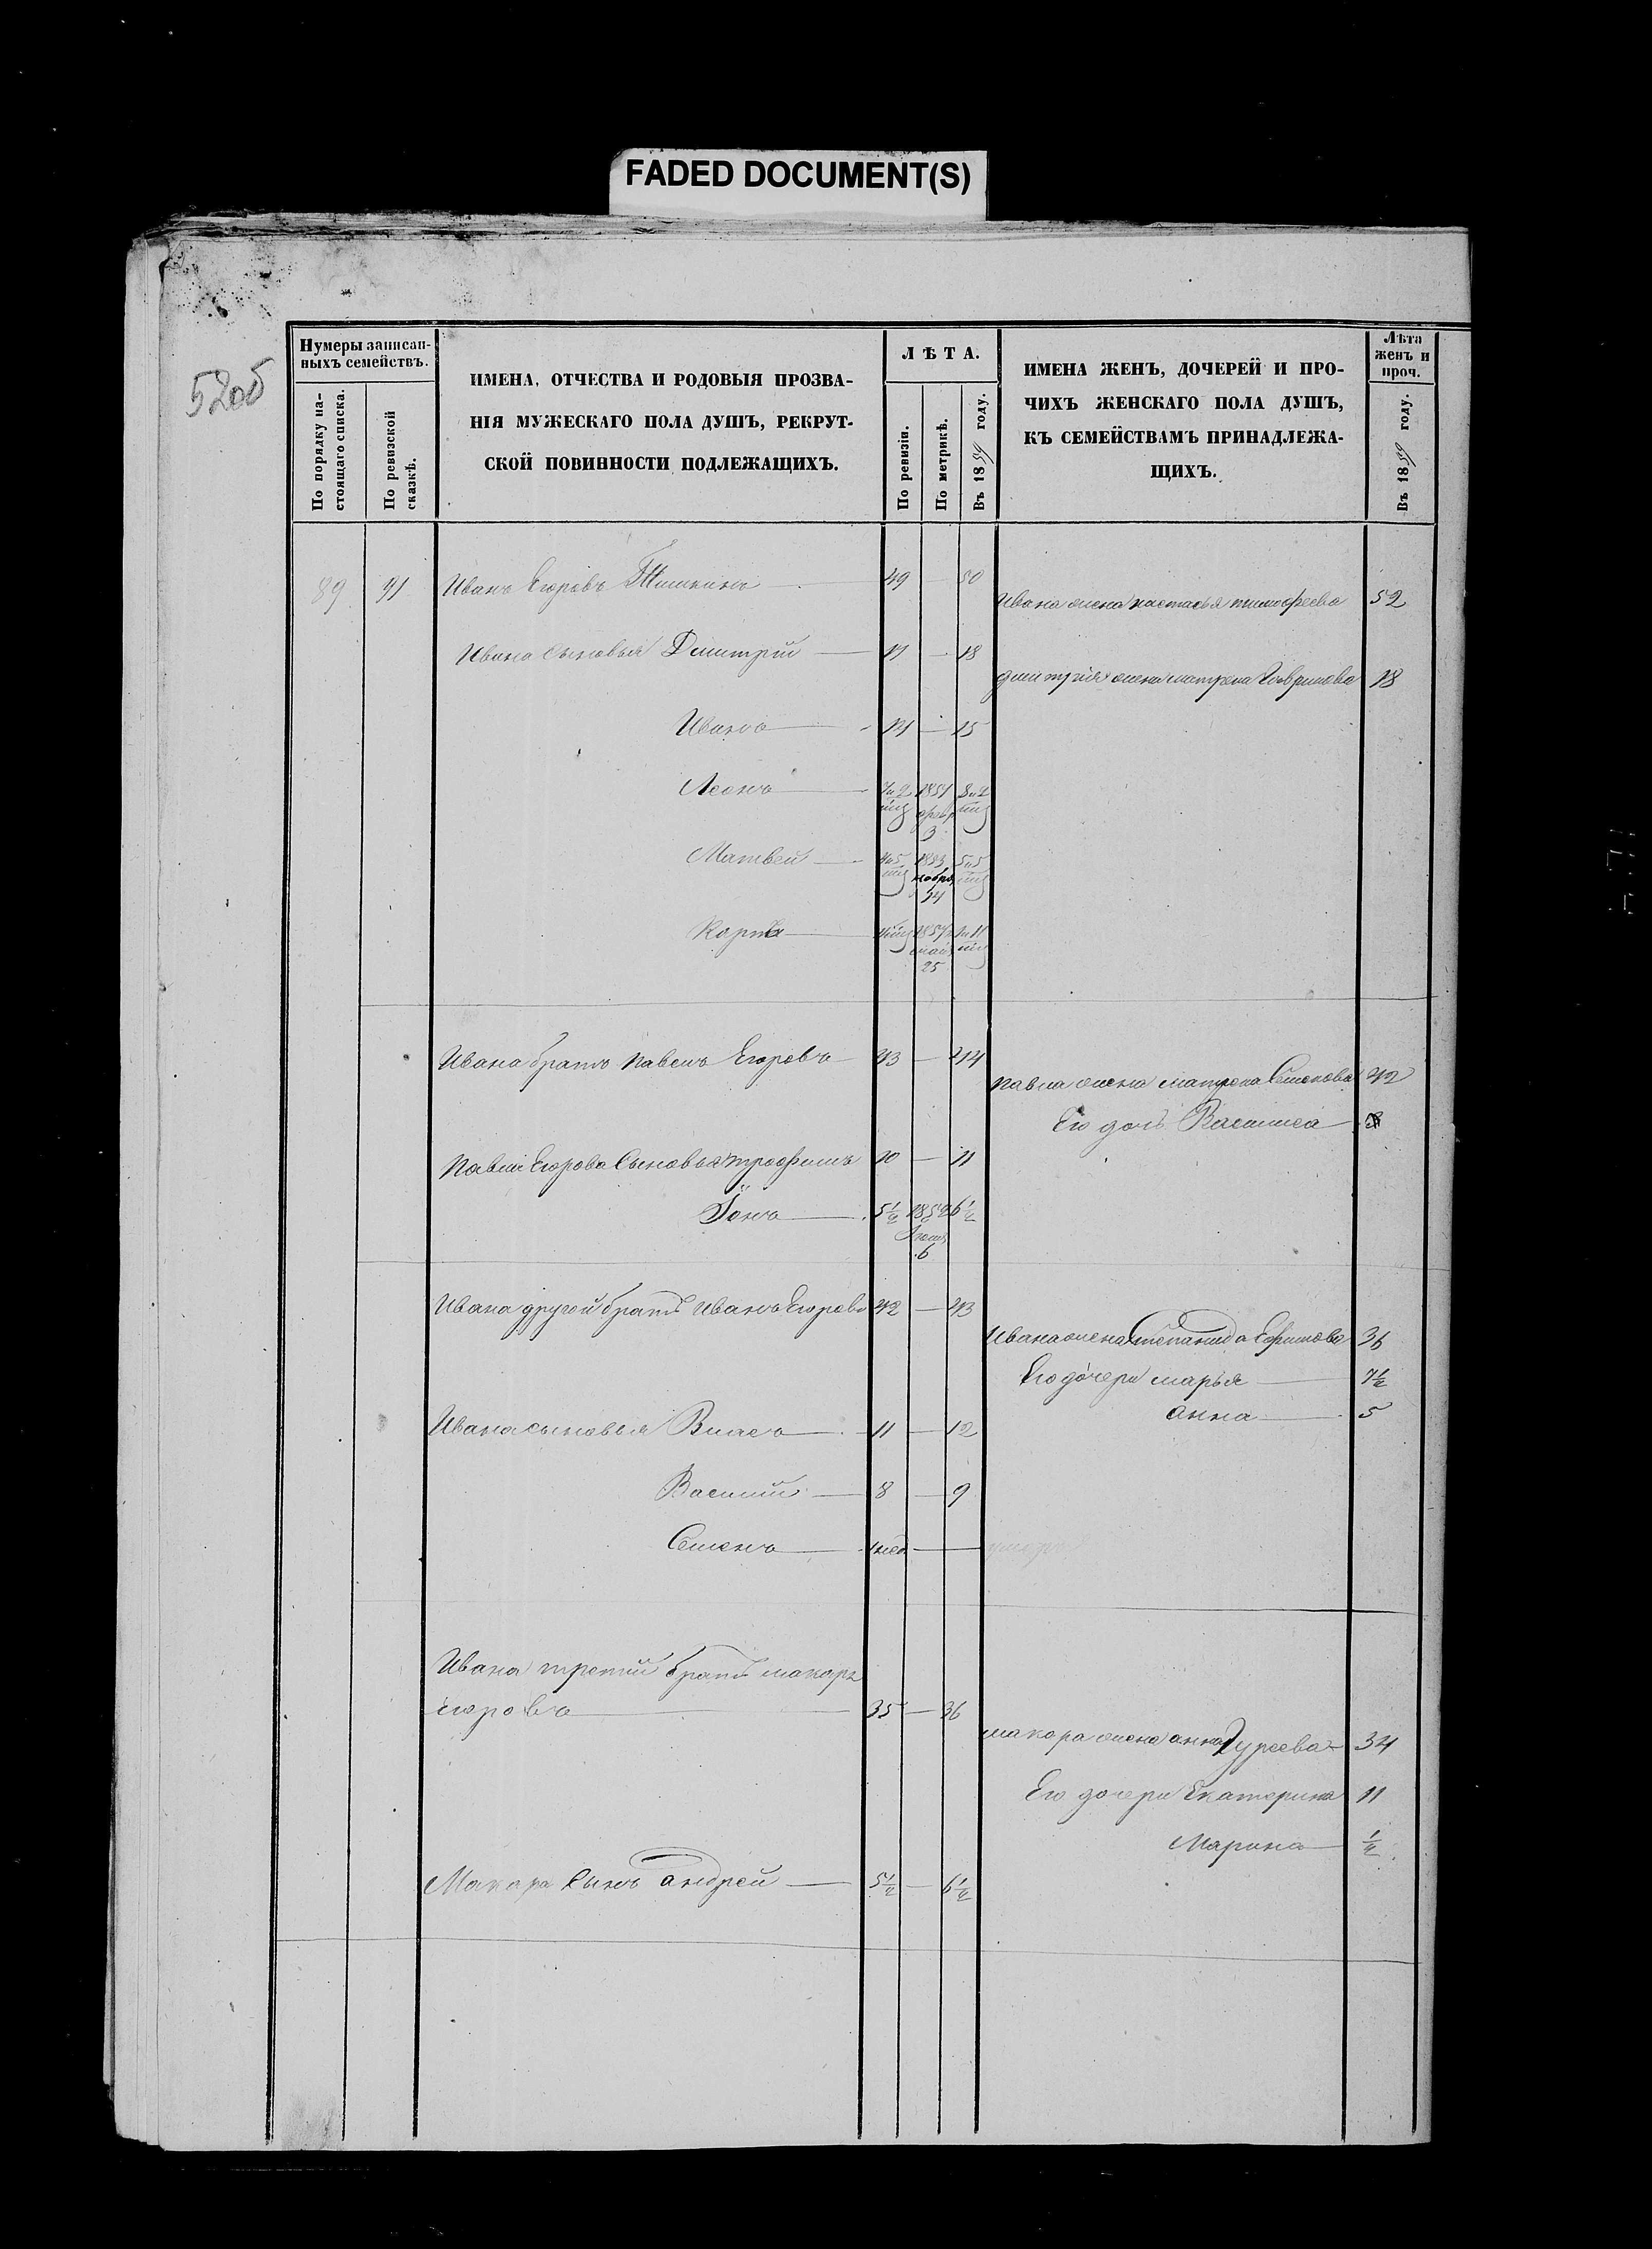 FADED DOCUMENT(S)
52об
Нумеры записан-
ныхъ семействъ.
По порядку на-
стоящаго списка.
По ревизской
сказкѣ.
ИМЕНА, ОТЧЕСТВА И РОДОВЫЯ ПРОЗВА-
НІЯ МУЖЕСКАГО ПОЛА ДУШЪ, РЕКРУТ-
СКОЙ ПОВИННОСТИ ПОДЛЕЖАЩИХЪ.
ЛѢТА.
По ревизіи.
По метрикѣ.
Въ 1859 году.
ИМЕНА ЖЕНЪ, ДОЧЕРЕЙ И ПРО-
ЧИХЪ ЖЕНСКАГО ПОЛА ДУШЪ,
КЪ СЕМЕЙСТВАМЪ ПРИНАДЛЕЖА-
ЩИХЪ.
Лѣта
женъ и
проч.
Въ 1859 году.
89 91 Иванъ Егоровъ 49 — 50
Ивана жена настасья тимофеева 52
Ивана Сыновья Дмитрий — 17 — 18
дмитрия жена матрена Гаврилова 18
Иванъ — 14 — 15
Леонъ — 7 и 2 1851 8 и 2
мц февр мц
3
Матвей — 4 и 5 1853 5 и 5
мц ноябр мц
14
Карпъ 1857 1 и 11
мая мц
25
Ивана братъ павелъ Егоровъ — 43 — 44
павла жена матрена Семенова 42
Его дочь Васились — 8
Павла Егорова Сыновья трофимъ 10 — 11
Іонъ — 5½ 1852 6½
6
Ивана другой братъ Иванъ Егоровъ 42 — 43
Ивана жена степанида Ефимова 36
Его дочери марья — 7½
анна — 5
Ивана сыновья Власъ — 11 — 12
Василий — 8 — 9
Семенъ — 1 нед —
Ивана третий братъ макаръ
егоровъ — 35 — 36
макара жена анна Гурьева 34
Его дочери Екатерина 11
Марина — ½
Макара Сынъ андрей — 5½ — 6½